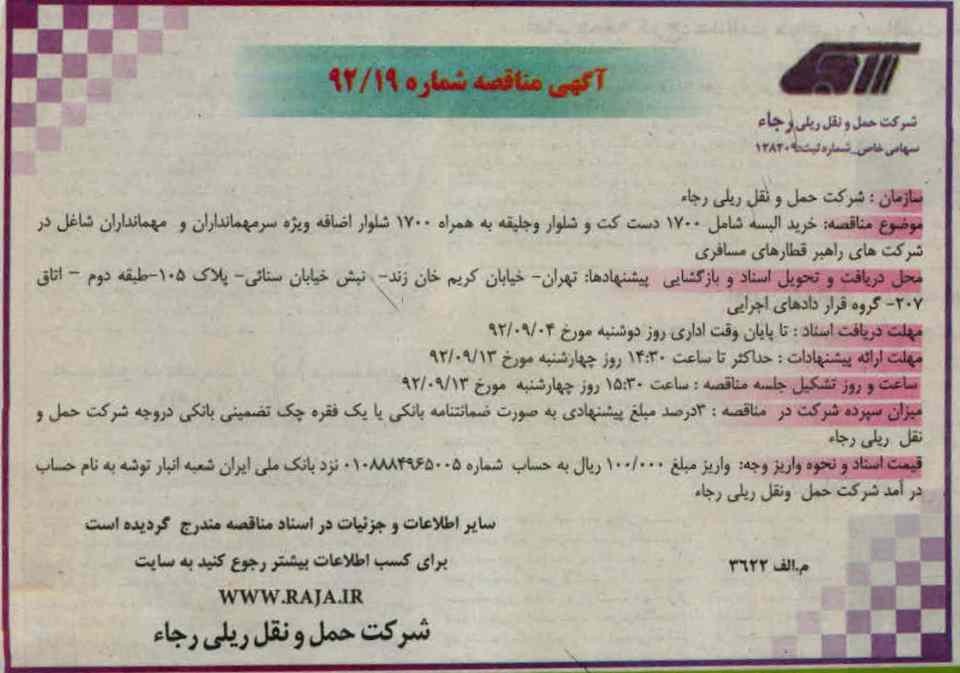 آگهی مناقصه شماره ۹۲/۱۹
شرکت حمل و نقل ریلی رجاء
سهامی خاص_شماره ثبت:۱۲۸۲۰۹
سازمان : شرکت حمل و نقل ریلی رجاء
موضوع مناقصه: خرید البسه شامل ۱۷۰۰ دست کت و شلوار وجلیقه به همراه ۱۷۰۰ شلوار اضافه ویژه سرمهمانداران و مهمانداران شاغل در
شرکت های راهبر قطارهای مسافری
محل دریافت و تحویل اسناد و بازگشایی پیشنهادها: تهران- خیابان کریم خان زند- نبش خیابان سنائی- پلاک ۱۰۵-طبقه دوم – اتاق
۲۰۷- گروه قرار دادهای اجرایی
مهلت دریافت اسناد : تا پایان وقت اداری روز دوشنبه مورخ ۹۲/۰۹/۰۴
مهلت ارائه پیشنهادات : حداکثر تا ساعت ۱۴:۳۰ روز چهارشنبه مورخ ۹۲/۰۹/۱۳
ساعت و روز تشکیل جلسه مناقصه : ساعت ۱۵:۳۰ روز چهارشنبه مورخ ۹۲/۰۹/۱۳
میزان سپرده شرکت در مناقصه : ۳درصد مبلغ پیشنهادی به صورت ضمانتنامه بانکی یا یک فقره چک تضمینی بانکی دروجه شرکت حمل و
نقل ریلی رجاء
قیمت اسناد و نحوه واریز وجه: واریز مبلغ ۱۰۰/۰۰۰ ریال به حساب شماره ۰۱۰۸۸۸۴۹۶۵۰۰۵ نزد بانک ملی ایران شعبه انبار توشه به نام حساب
در آمد شرکت حمل ونقل ریلی رجاء
سایر اطلاعات و جزئیات در اسناد مناقصه مندرج گردیده است
برای کسب اطلاعات بیشتر رجوع کنید به سایت
م.الف ۳۶۲۲
WWW.RAJA.IR
شرکت حمل و نقل ریلی رجاء